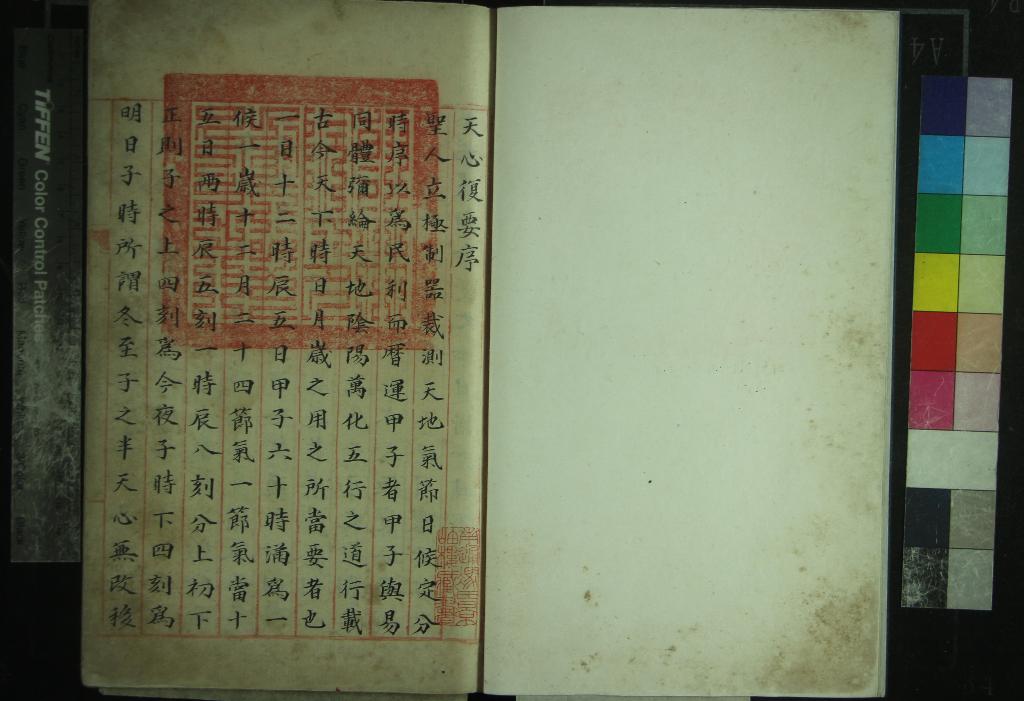 天心復要序
聖人立極制器裁測天地氣節日候定分
時序以為民利而曆運甲子者甲子與易
同體彌綸天地陰陽萬化五行之道行載
古今天下時日月歲之用之所當要者也
一日十二時辰五日甲子六十時滿爲一
候一歲十二月二十四節氣一節氣當十
五日兩時辰五刻一時辰八刻分上初下
正則子之上四刻爲今夜子時下四刻爲
明日子時所謂冬至子之半天心無改移
TIFFEN Color Control Patches
A4